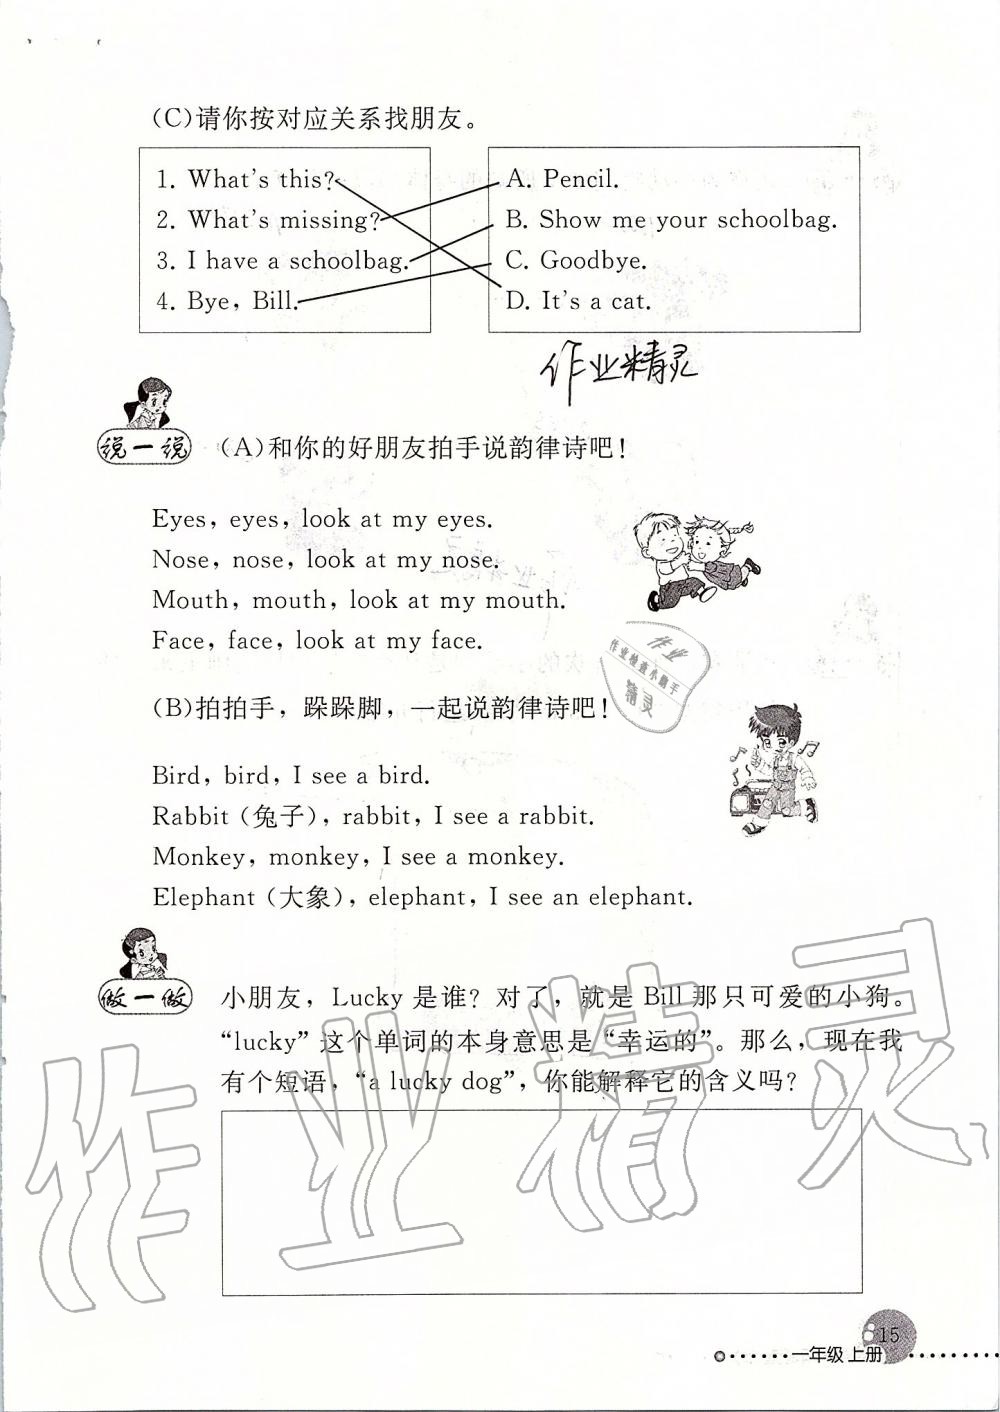 (C)请你按对应关系找朋友。
1. What's this?
2. What's missing?
3. I have a schoolbag.
4. Bye, Bill.
A. Pencil.
B. Show me your schoolbag.
C. Goodbye.
D. It's a cat.
作业精灵
说一说
(A)和你的好朋友拍手说韵律诗吧！
Eyes, eyes, look at my eyes.
Nose, nose, look at my nose.
Mouth, mouth, look at my mouth.
Face, face, look at my face.
作业
作业检查小助手
精灵
(B)拍拍手，跺跺脚，一起说韵律诗吧！
Bird, bird, I see a bird.
Rabbit (兔子), rabbit, I see a rabbit.
Monkey, monkey, I see a monkey.
Elephant (大象), elephant, I see an elephant.
做一做
小朋友，Lucky 是谁？对了，就是 Bill 那只可爱的小狗。
“lucky”这个单词的本身意思是“幸运的”。那么，现在我
有个短语，“a lucky dog”，你能解释它的含义吗？
作业精灵
15
一年级 上册